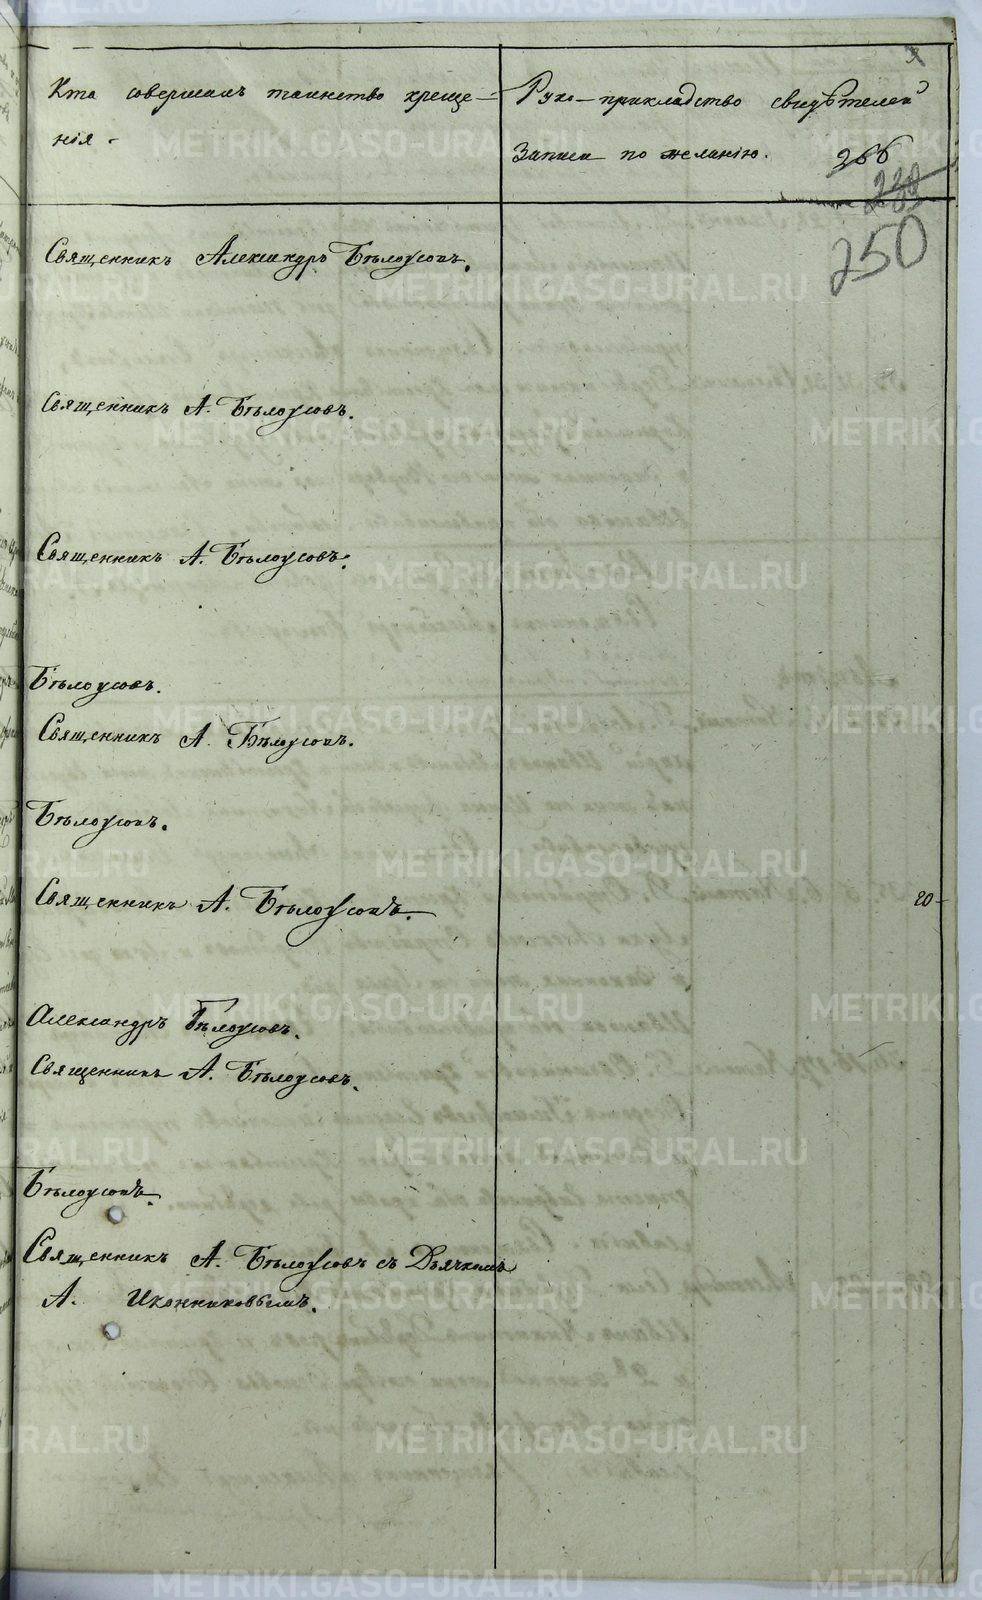 Кто совершалъ таинство креще-
нія.
Руко-прикладство свидѣтелей
записи по желанію.
266
220
250
Священникъ Александръ Бѣлоусовъ.
Священникъ А. Бѣлоусовъ.
Священникъ А. Бѣлоусовъ.
Бѣлоусовъ.
Священникъ А. Бѣлоусовъ.
Бѣлоусовъ.
Священникъ А. Бѣлоусовъ.
20-
Александръ Бѣлоусовъ.
Священникъ А. Бѣлоусовъ.
Бѣлоусовъ.
Священникъ А. Бѣлоусовъ съ Дьячкомъ
А. Иконниковымъ.
METRIKI.GASO-URAL.RU